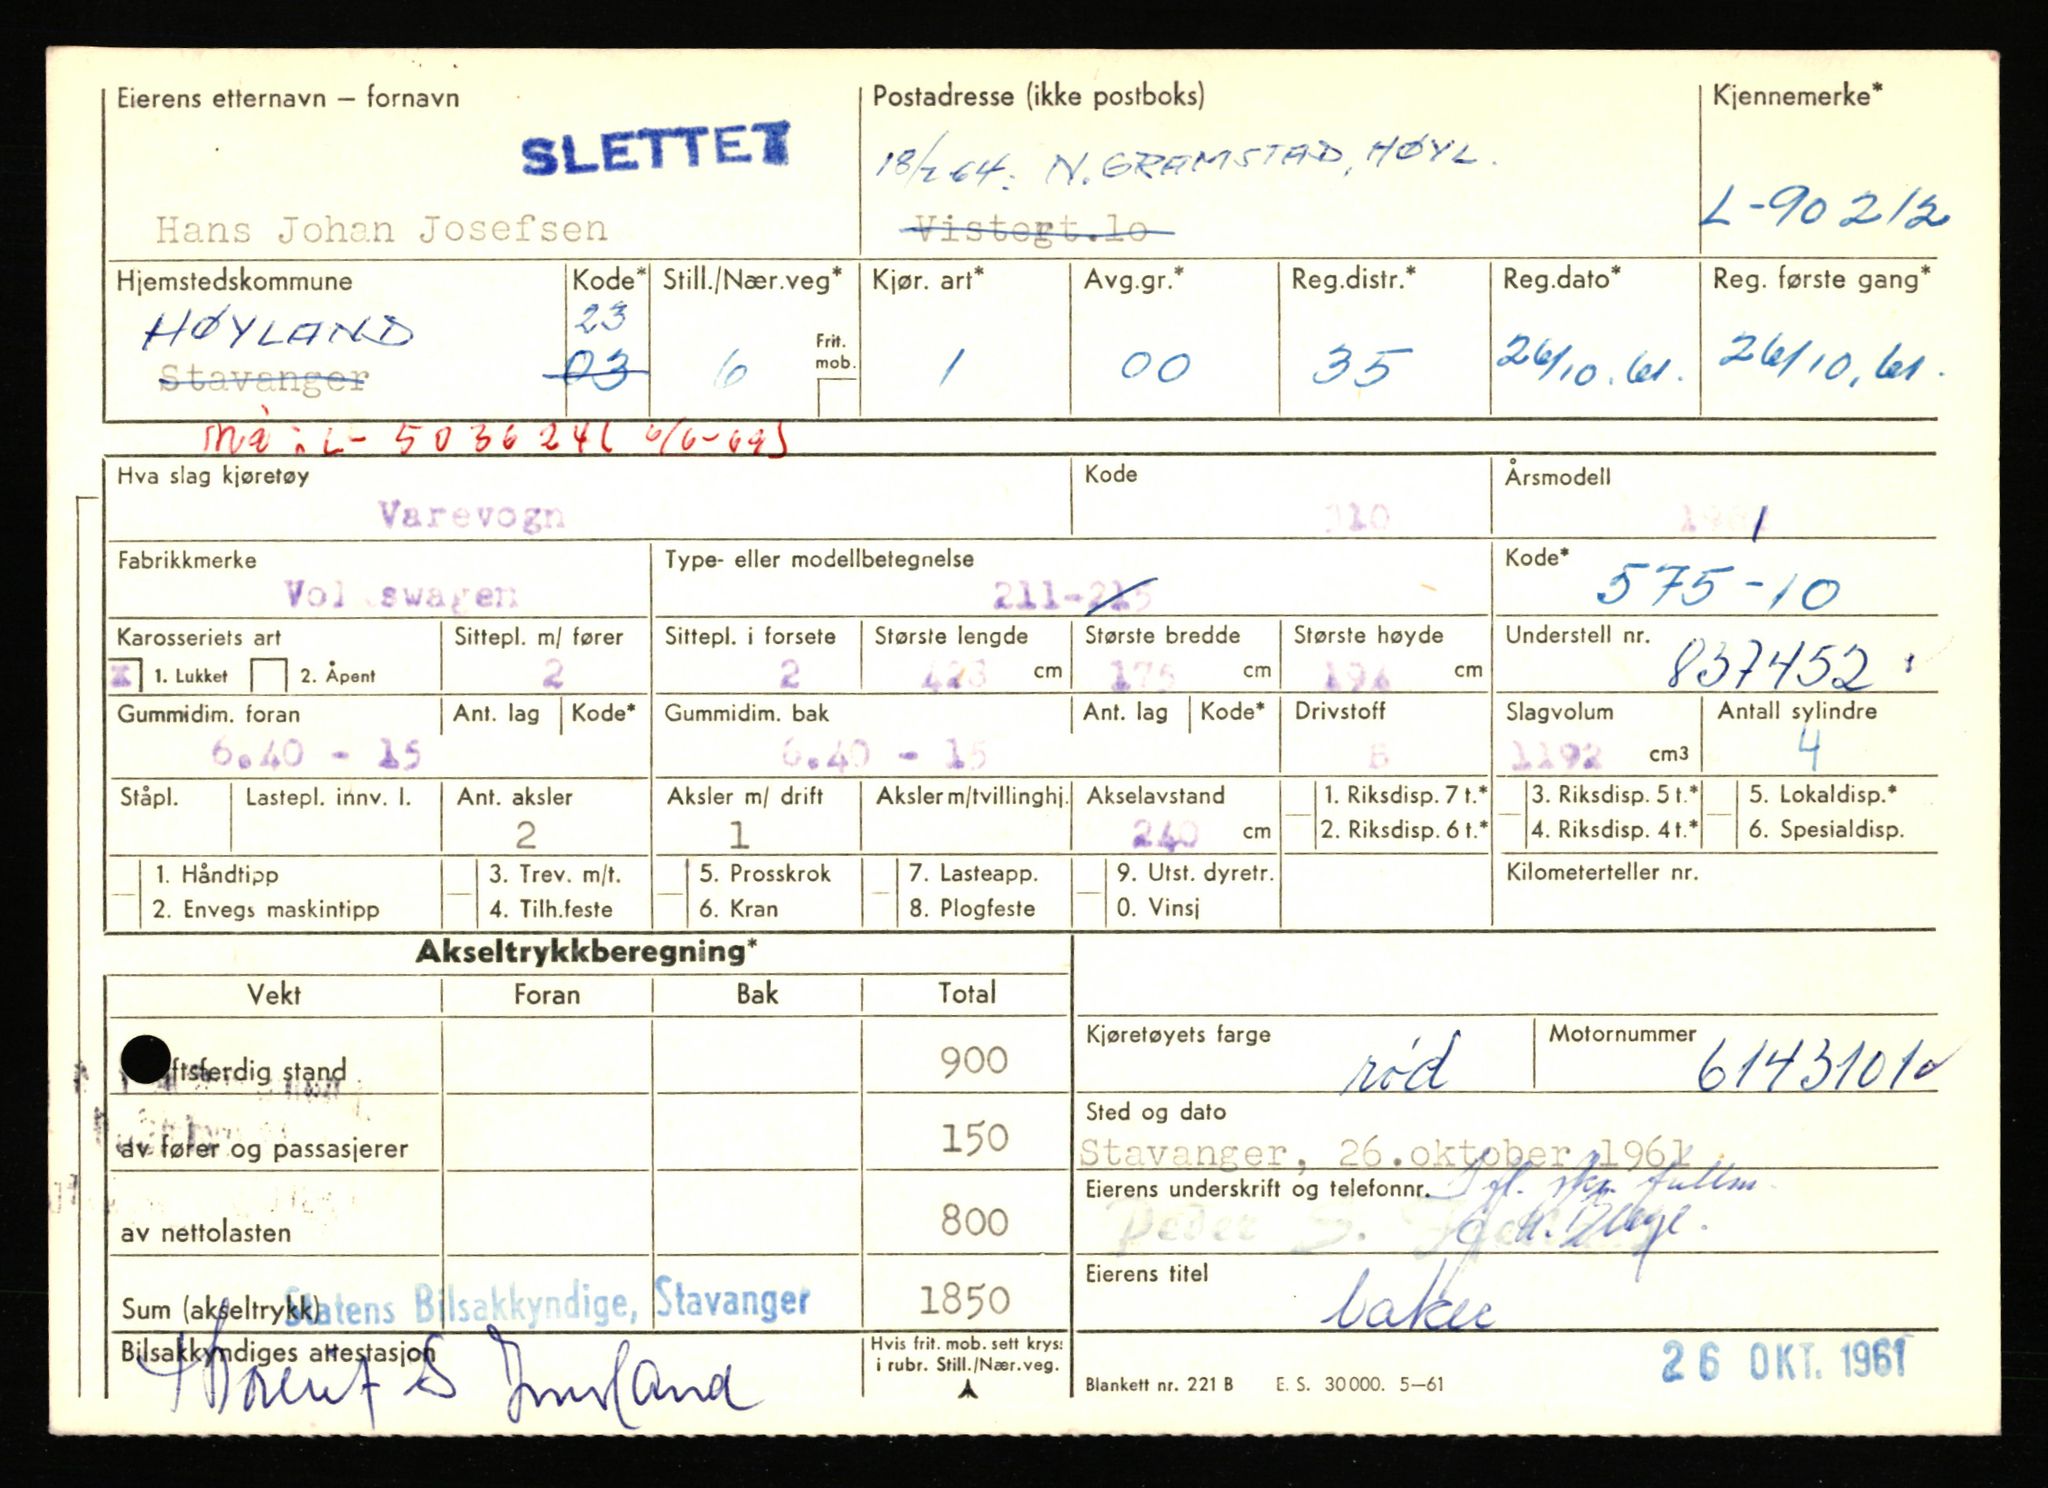 Eierens etternavn – fornavn
SLETTET
Hans Johan Josefsen
Postadresse (ikke postboks)
18/2 64: N. GRAMSTAD, HØYL.
Vistegt.10
Kjennemerke*
L-90212
Hjemstedskommune
HØYLAND
Stavanger
Kode*
23
03
Still./Nær.veg*
6
Frit. mob.
Kjør. art*
1
Avg.gr.*
00
Reg.distr.*
35
Reg.dato*
26/10.61.
Reg. første gang*
26/10.61.
L- 503624 ( 6/6-69)
Hva slag kjøretøy
Varevogn
Kode
310
Årsmodell
1961
Fabrikkmerke
Volkswagen
Type- eller modellbetegnelse
211-215
Kode*
575-10
Karosseriets art
x 1. Lukket 2. Åpent
Sittepl. m/ fører
2
Sittepl. i forsete
2
Største lengde
428 cm
Største bredde
175 cm
Største høyde
194 cm
Understell nr.
837452
Gummidim. foran
6.40 - 15
Ant. lag
Kode*
Gummidim. bak
6.40 - 15
Ant. lag
Kode*
Drivstoff
B
Slagvolum
1192 cm3
Antall sylindre
4
Ståpl.
Lastepl. innv. l.
Ant. aksler
2
Aksler m/ drift
1
Aksler m/tvillinghj.
Akselavstand
240 cm
1. Riksdisp. 7 t.*
2. Riksdisp. 6 t.*
3. Riksdisp. 5 t.*
4. Riksdisp. 4 t.*
5. Lokaldisp.*
6. Spesialdisp.
1. Håndtipp
2. Envegs maskintipp
3. Trev. m/t.
4. Tilh.feste
5. Prosskrok
6. Kran
7. Lasteapp.
8. Plogfeste
9. Utst. dyretr.
0. Vinsj
Kilometerteller nr.
Akseltrykkberegning*
Vekt Foran Bak Total
ftsferdig stand 900
av fører og passasjerer 150
av nettolasten 800
Sum (akseltrykk) 1850
Statens Bilsakkyndige, Stavanger
Bilsakkyndiges attestasjon
Hvis frit. mob. sett kryss
i rubr. Still./Nær.veg.
Kjøretøyets farge
rød
Motornummer
6143101
Sted og dato
Stavanger, 26.oktober 1961
Eierens underskrift og telefonnr.
Peder S.
Eierens titel
baker
26 OKT. 1961
Blankett nr. 221 B E. S. 30000. 5–61